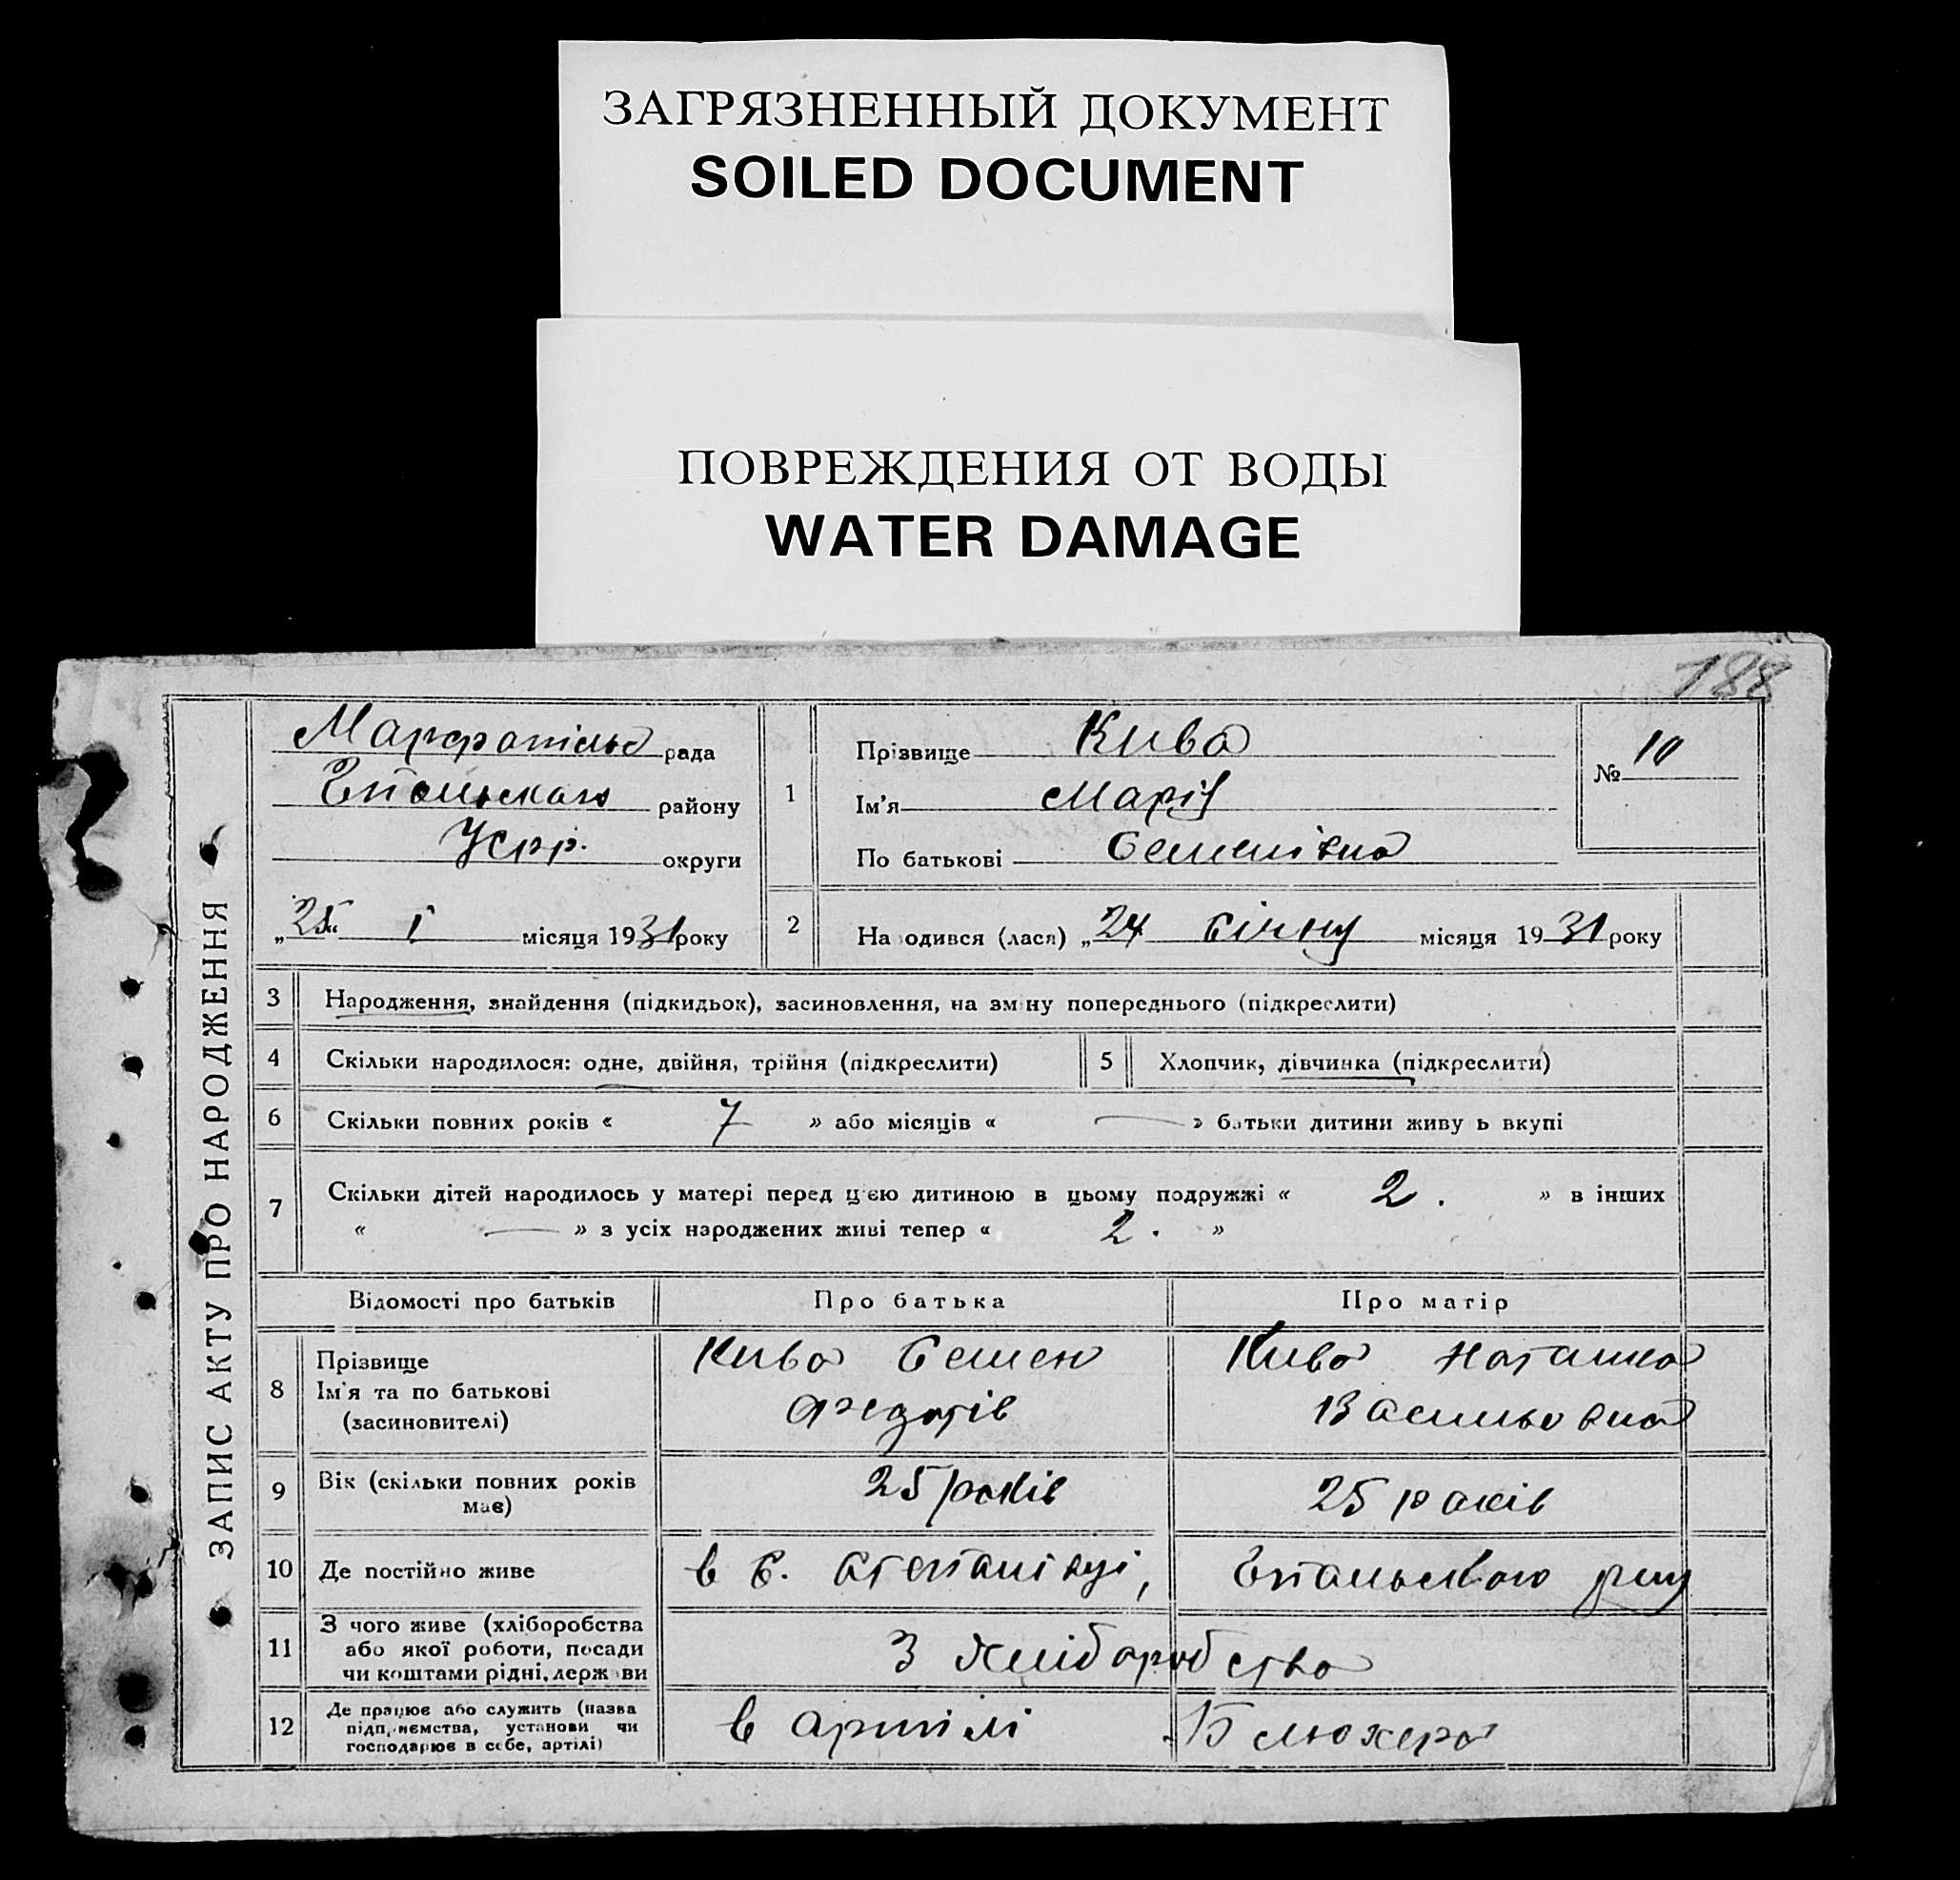 ЗАГРЯЗНЕННЫЙ ДОКУМЕНТ
SOILED DOCUMENT
ПОВРЕЖДЕНИЯ ОТ ВОДЫ
WATER DAMAGE
188
ЗАПИС АКТУ ПРО НАРОДЖЕННЯ
рада
району
Усрр. округи
„25“ I місяця 1931 року
1
Прізвище Кива
Ім'я Марія
По батькові Семенівна
№ 10
2 На одився (лася) „24 січня місяця 1931 року
3 Народження, знайдення (підкидьок), засиновлення, на зміну попереднього (підкреслити)
4 Скільки народилося: одне, двійня, трійня (підкреслити)
5 Хлопчик, дівчинка (підкреслити)
6 Скільки повних років « 7 » або місяців « — » батьки дитини живу ь вкупі
7 Скільки дітей народилось у матері перед цією дитиною в цьому подружжі « 2. » в інших
« — » з усіх народжених живі тепер « 2. »
Відомості про батьків Про батька Про матір
8 Прізвище
Ім'я та по батькові
(засиновителі)
Кива Семен
Федотів
Кива Наташка
Васильовна
9 Вік (скільки повних років
має)
25 років
25 років
10 Де постійно живе в с. Степанівці,
11 З чого живе (хліборобства
або якої роботи, посади
чи коштами рідні, держави
З хліборобства
12 Де працює або служить (назва
підприємства, установи чи
господарює в себе, артілі)
в артілі Блюхера